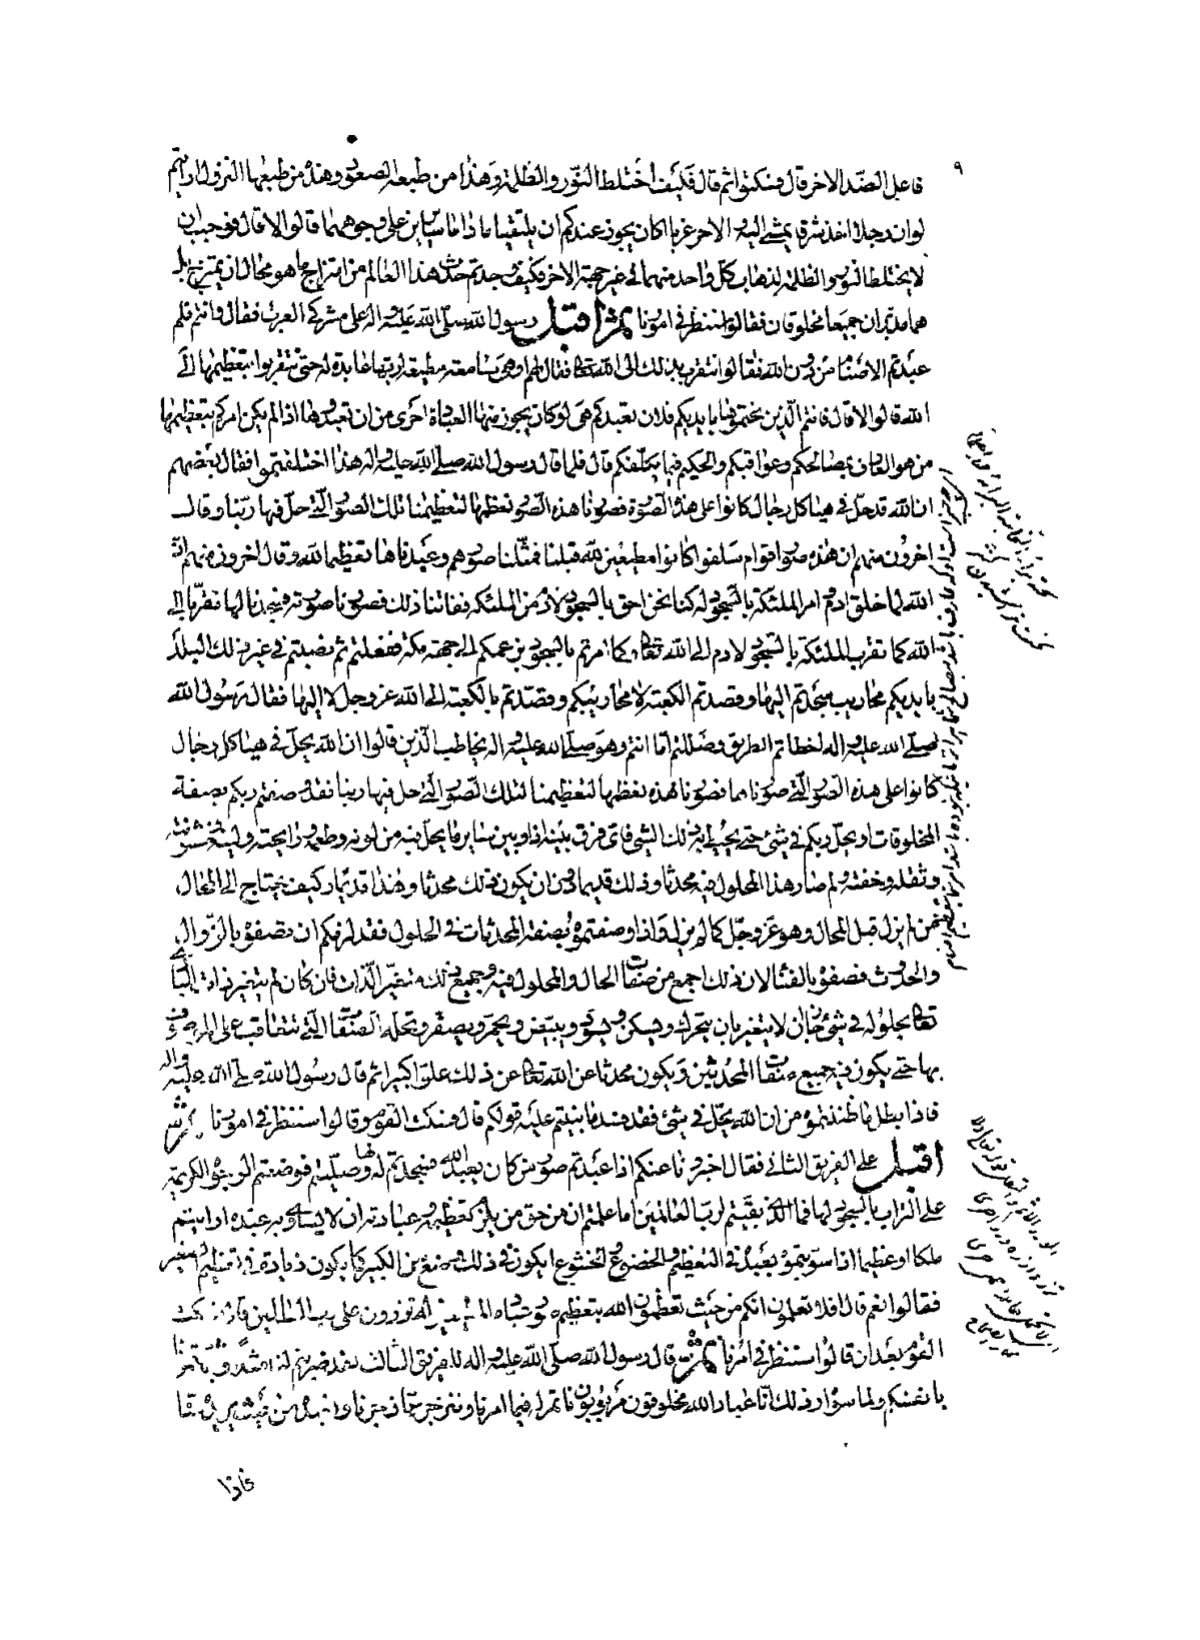 ٩
فاعل الضّد الاخر قال فسكتوا ثم قال فكيف اختلط النّور والظّلمة وهذا من طبعه الصعود وهذه من طبعها النزول ارايتم
لوان رجلا اخذ شرقا يمشى اليه والاخر غربا اكان يجوز عندكم ان يلتقيا ماداما سايرين على وجوههما قالوا لا قال فوجب ان
لا يختلط النور والظلمة لذهاب كل واحد منهما في غير جهة الاخر فكيف وجدتم حدث هذا العالم من امتزاج ما هو محال ان يمتزج بل
هما مدبران جميعا مخلوقان فقالوا سننظر في امورنا ثم اقبل رسول الله صلّى الله عليه واله على مشركي العرب فقال وانتم فلم
عبدتم الاصنام من دون الله فقالوا نتقرب بذلك الى الله تعالى فقال لهم او هي سامعة مطيعة لربها عابدة له حتى تتقربوا بتعظيمها الى
الله قالوا لا قال فانتم الّذين نحتموها بايديكم فلان تعبدكم هي لو كان يجوز منها العبادة احرى من ان تعبدوها اذا لم يكن امركم بتعظيمها
من هو العارف بمصالحكم وعواقبكم والحكيم فيما يكلفكم قال فلما قال رسول الله صلى الله عليه واله هذا اختلفوا فقال بعضهم
ان الله قد حلّ في هياكل رجال كانوا على هذه الصّورة فصورنا هذه الصّور نعظمها لتعظيمنا تلك الصور التي حل فيها ربّنا وقال
اخرون منهم ان هذه صور اقوام سلفوا كانوا مطيعين لله قبلنا فمثّلنا صورهم وعبدناها تعظيما لله وقال اخرون منهم انّ
الله لما خلق ادم وامر الملئكة بالسّجود له كنا نحن احق بالسجود لادم من الملئكة ففاتنا ذلك فصورنا صورته فسجدنا لها تقرّبا الى
الله كما تقرب الملئكة بالسّجود لادم الى الله تعالى وكما امرتم بالسجود بزعمكم الى جهة مكة ففعلتم ثم نصبتم في غير ذلك البلد
بايديكم محاريب سجدتم اليها وقصدتم الكعبة لا محاريبكم وقصدتم بالكعبة الى الله عز وجل لا اليها فقال رسول الله
صلى الله عليه واله اخطاتم الطريق وضللتم امّا انتم وهو صلى الله عليه واله يخاطب الّذين قالوا ان الله يحلّ في هياكل رجال
كانوا على هذه الصور التي صورناها فصورنا هذه نعظمها لتعظيمنا لتلك الصّور الّتي حل فيها ربنا فقد وصفتم ربكم بصفة
المخلوقات او يحلّ ربكم في شيء حتى يحيط به ذلك الشي فاى فرق بينه اذا وبين ساير ما يحلّ فيه من لونه وطعمه ورايحته ولينه وخشونته
وثقله وخفته ولم صار هذا المحلول فيه محدثا وذلك قديما دون ان يكون ذلك محدثا وهذا قديما وكيف يحتاج الى المحال
من لم يزل قبل المحال وهو عزّ وجلّ كما لم يزل واذا وصفتموه بصفة المحدثات في الحلول فقد لزمكم ان تصفوه بالزّوال
والحدوث فصفوه بالفناء لان ذلك اجمع من صفات الحال والمحلول فيه وجميع ذلك متغيّر الذّات فان كان لم يتغير ذات البارى
تعالى بحلوله في شيء جاز ان لا يتغير بان يتحرك ويسكن ويسود ويبيض ويحمر ويصفر وتحله الصفات الّتي تتعاقب على الموصوف
بها حتى يكون فيه جميع صفات المحدثين ويكون محدثا عز الله تعالى عن ذلك علوّا كبيرا ثم قال رسول الله صلى الله عليه واله
فاذا بطل ما ظننتموه من ان الله يحلّ في شيء فقد فسد ما بنيتم عليه قولكم قال فسكت القوم وقالوا سننظر في امورنا ثم
اقبل على الفريق الثاني فقال اخبرونا عنكم اذا عبدتم صور من كان يعبد الله فسجدتم لها وصلّيتم فوضعتم الوجوه الكريمة
على التراب بالسجود لها فما الّذي بقيتم لربّ العالمين اما علمتم ان من حق من يلزم تعظيمه وعبادته ان لا يساوى به عبده ارايتم
ملكا او عظيما اذا سوّيتموه بعبيده في التعظيم والخضوع والخشوع ايكون في ذلك وضع من الكبير كما يكون زيادة في تعظيم الصغير
فقالوا نعم قال افلا تعلمون انكم من حيث تعظمون الله بتعظيم صور عباده المطيعين له تزرون على رب العالمين قال فسكت
القوم بعد ان قالوا سننظر في امرنا ثم قال رسول الله صلى الله عليه واله للفريق الثالث لقد ضربتم لنا مثلا وشبهتمونا
بانفسكم ولسنا سواء وذلك انّا عباد الله مخلوقون مربوبون ناتمر له فيما امرنا وننزجر عمّا زجرنا ونعبده من حيث يريده منا
فاذا